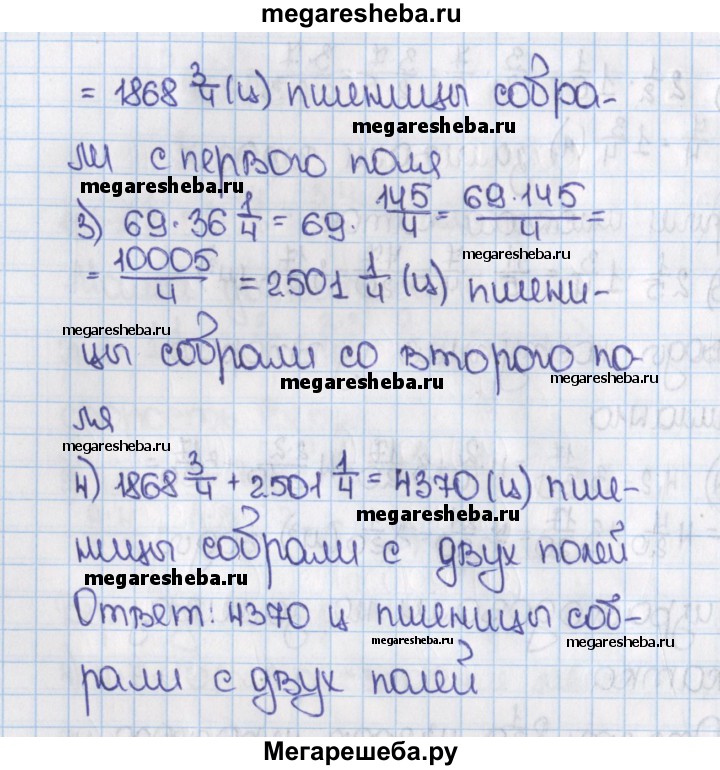 megaresheba.ru
= 1868 3/4 (ц) пшеницы собра-
megaresheba.ru
ли с первого поля
megaresheba.ru
3) 69·36 1/4 = 69· 145/4 = 69·145/4 =
megaresheba.ru
= 10005/4 = 2501 1/4 (ц) пшени-
megaresheba.ru
цы собрали со второго по-
megaresheba.ru megaresheba.ru
ля
megaresheba.ru
4) 1868 3/4 + 2501 1/4 = 4370 (ц) пше-
megaresheba.ru
ницы собрали с двух полей
megaresheba.ru
Ответ: 4370 ц пшеницы соб-
megaresheba.ru megaresheba.ru
рали с двух полей
Мегарешеба.ру